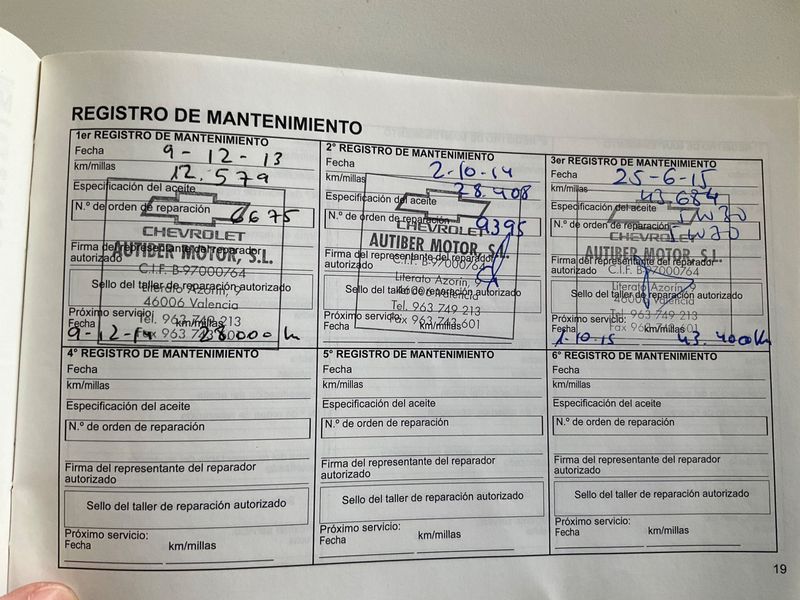 REGISTRO DE MANTENIMIENTO
1er REGISTRO DE MANTENIMIENTO
Fecha 9-12-13
km/millas 12.579
Especificación del aceite
N.º de orden de reparación 6675
CHEVROLET
AUTIBER MOTOR, S.L.
Firma del representante del reparador
autorizado
C.I.F. B-97000764
Sello del taller de reparación autorizado
Literato Azorín, 9
46006 Valencia
Tel. 963 749 213
Fax 963 743 601
Próximo servicio:
Fecha 9-12-14 km/millas 28000 km
2º REGISTRO DE MANTENIMIENTO
Fecha 2-10-14
km/millas 28.908
Especificación del aceite
N.º de orden de reparación 9395
CHEVROLET
AUTIBER MOTOR, S.L.
Firma del representante del reparador
autorizado
C.I.F. B-97000764
Sello del taller de reparación autorizado
Literato Azorín, 9
46006 Valencia
Tel. 963 749 213
Fax 963 743 601
Próximo servicio:
Fecha km/millas
3er REGISTRO DE MANTENIMIENTO
Fecha 25-6-15
km/millas 43.684
Especificación del aceite 5W30
N.º de orden de reparación 5W30
CHEVROLET
AUTIBER MOTOR, S.L.
Firma del representante del reparador
autorizado
C.I.F. B-97000764
Sello del taller de reparación autorizado
Literato Azorín, 9
46006 Valencia
Tel. 963 749 213
Fax 963 743 601
Próximo servicio:
Fecha 2-10-15 km/millas 43.400 km
4º REGISTRO DE MANTENIMIENTO
Fecha
km/millas
Especificación del aceite
N.º de orden de reparación
Firma del representante del reparador
autorizado
Sello del taller de reparación autorizado
Próximo servicio:
Fecha km/millas
5º REGISTRO DE MANTENIMIENTO
Fecha
km/millas
Especificación del aceite
N.º de orden de reparación
Firma del representante del reparador
autorizado
Sello del taller de reparación autorizado
Próximo servicio:
Fecha km/millas
6º REGISTRO DE MANTENIMIENTO
Fecha
km/millas
Especificación del aceite
N.º de orden de reparación
Firma del representante del reparador
autorizado
Sello del taller de reparación autorizado
Próximo servicio:
Fecha km/millas
19